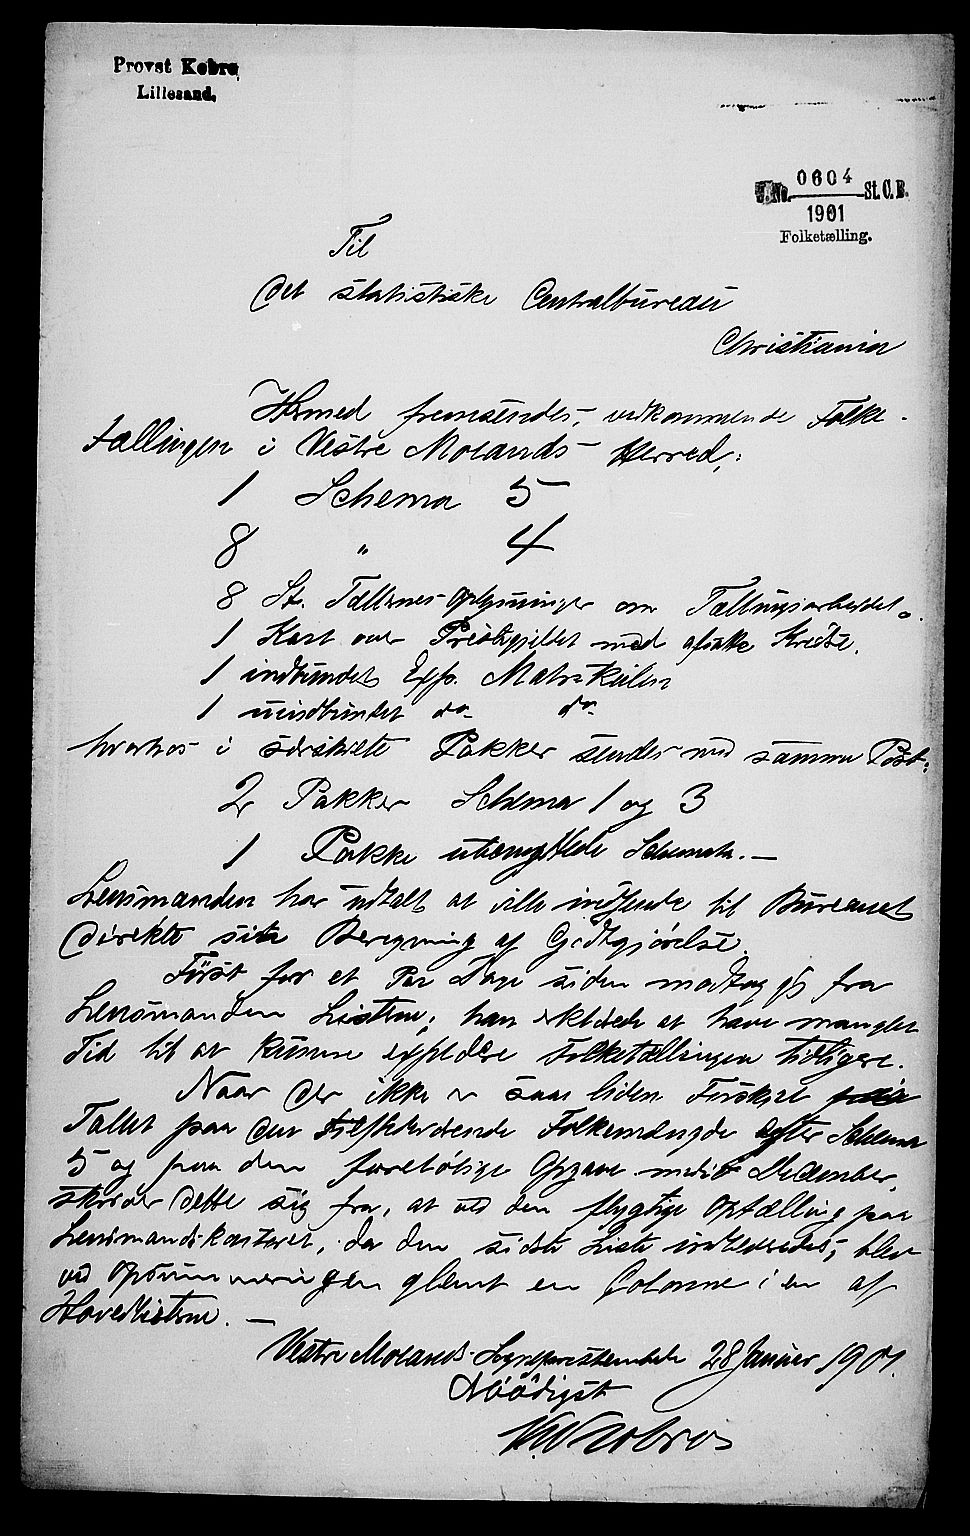 Provst Kobro,
Lillesand,
J.No. 0604 St. C. B.
1901
Folketælling.
Til
Det statistiske Centralbureau
Christiania
Hermed fremsendes, vedkommende Folke-
tællingen i Vestre Molands Herred,:
1 Schema 5
8 " 4
8 St. Tællernes Oplysninger om Tællingsarbeidet.
1 Kart over Præstegjeldet med afsatte Kredse.
1 indbundet Expl. Matrikulen
1 uindbundet do do
hvorhos i særskilte Pakker sendes med samme Post:
2 Pakker Schema 1 og 3
1 Pakke ubenyttede Schemata. —
Lensmanden har udtalt at ville indsende til Bureauet
direkte sin Beregning af Godtgjørelse.
Først for et Par Dage siden modtog jeg fra
Lensmanden Listerne; han erklærede at have manglet
Tid til at kunne expedere Folketællingen tidligere.
Naar der ikke er saa liden Forskjel
Tallet paa den tilstedeværende Folkemængde efter Schema
5 og paa den foreløbige Opgave medio December,
skriver dette sig fra, at ved den flygtige Optælling paa
Lensmandskontoret, da den sidste Liste indleveredes, blev
ved Opsummeringen glemt en Colonne i en af
Hovedlisterne. —
Vestre Molands Sogneprestembede 28 Januar 1901.
Ærbødigst
Kobro